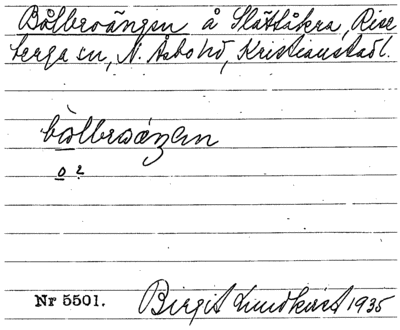 Bålbroängen å Slättåkra, Rise
berga sn, N. Åsbo hd, Kristianstad l.
bålbroäŋen
o 2
Nr 5501. Birgit Lundkvist 1935